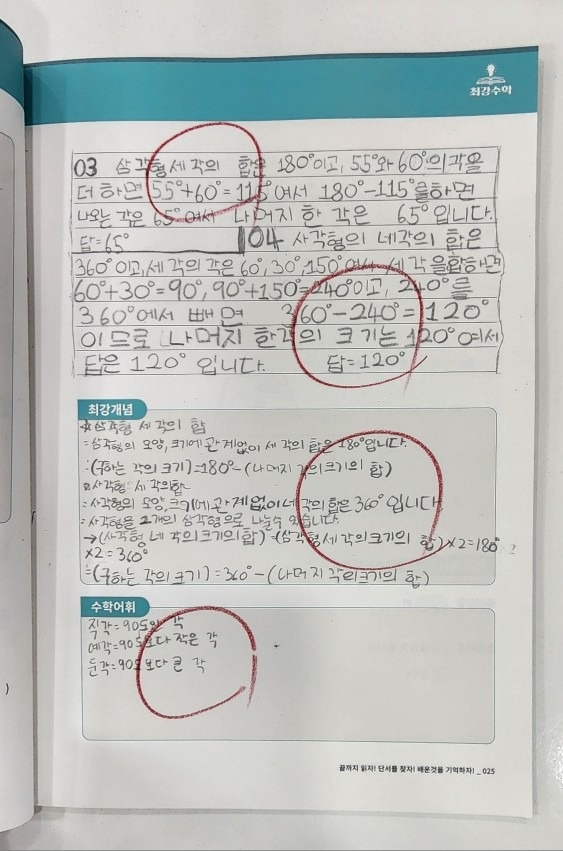 최강수학
03 삼각형 세 각의 합은 180°이고, 55°와 60°의 각을
더 하면 55°+60°=115°여서 180°-115°를하면
나오는 각은 65°여서 나머지 한 각은 65°입니다.
답=65° 104 사각형의 네각의 합은
360°이고, 세 각의 각은 60°, 30°, 150°여서 세 각을 합하면
60°+30°=90°, 90°+150°=240°이고, 240°를
360°에서 빼면 360°-240°=120°
이므로 나머지 한각의 크기는 120°여서
답은 120°입니다. 답=120°
최강개념
☆삼각형 세 각의 합
=삼각형의 모양, 크기에 관계없이 세 각의 합은 180°입니다.
:(구하는 각의 크기)=180°-(나머지 각의크기의 합)
사각형 세 각의합
=사각형의 모양, 크기에 관계없이 네 각의 합은 360°입니다
=사각형을 2개의 삼각형으로 나눌수 있습니다.
→(사각형 네 각의크기의 합)=(삼각형 세 각의크기의 합)×2=180°
×2=360°
=(구하는 각의 크기)=360°-(나머지 각의크기의 합)
수학어휘
직각=90도인 각
예각=90도보다 작은 각
둔각=90도보다 큰 각
끝까지 읽자! 단서를 찾자! 배운것을 기억하자! _ 025